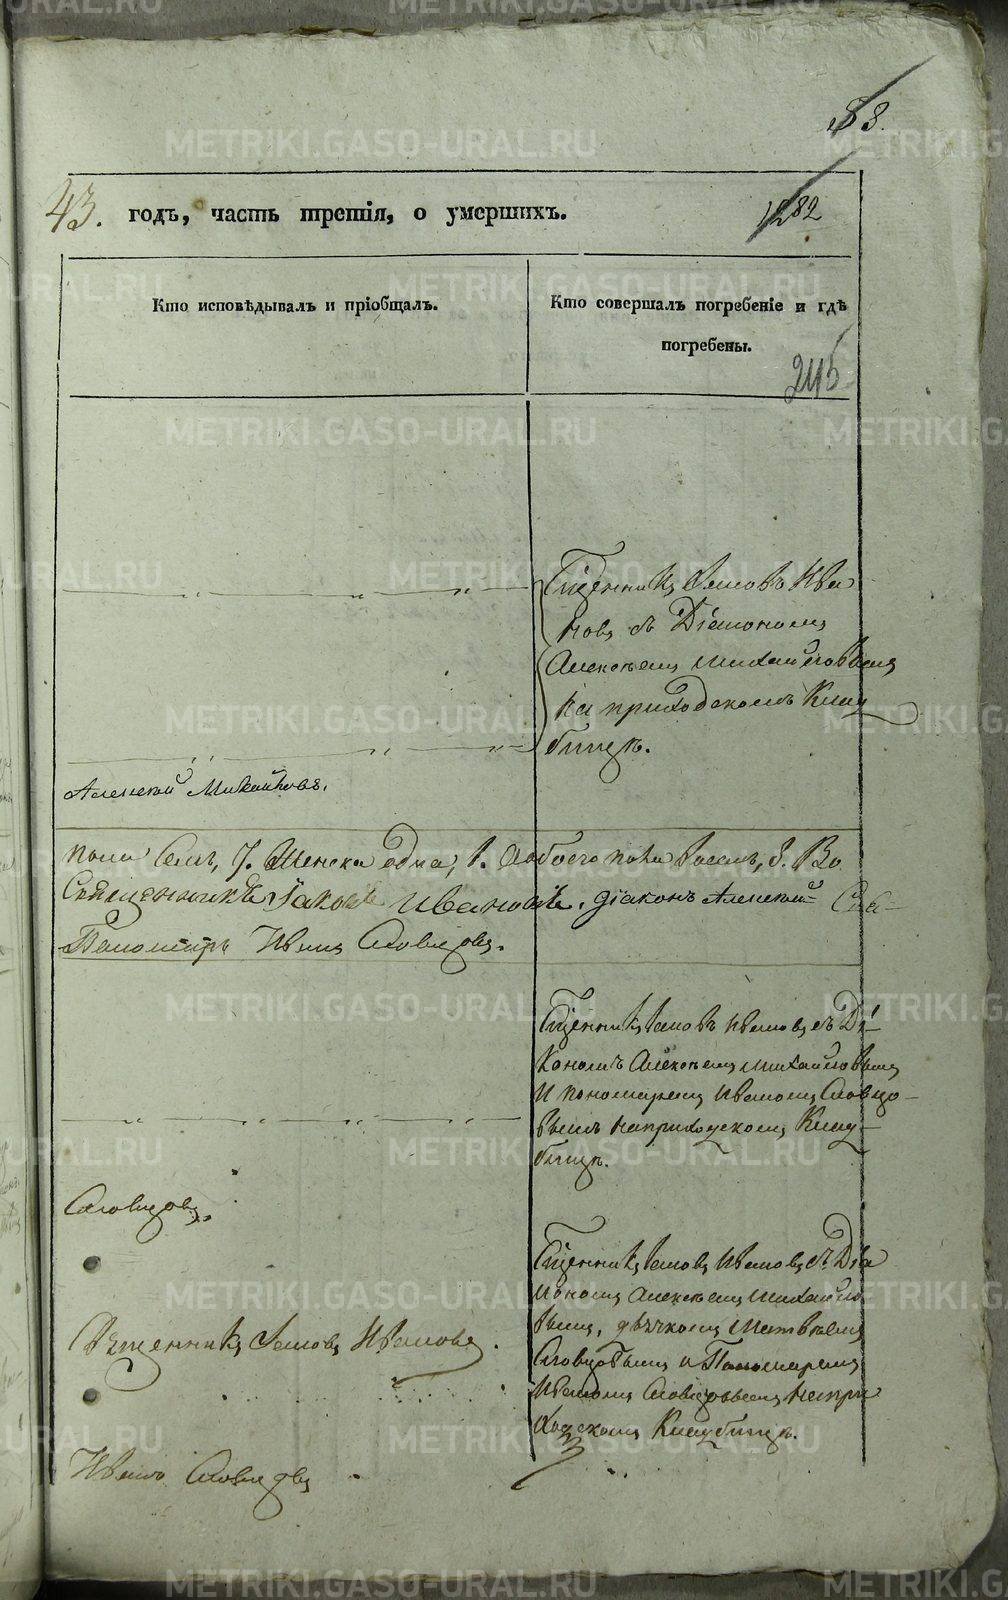 88.
43. годъ, часть третія, о умершихъ.
1282
Кто исповѣдывалъ и пріобщалъ.
Кто совершалъ погребеніе и гдѣ
погребены.
245
Сщенникъ Іаковъ Ива
новъ съ Діакономъ
Алексѣемъ Михайловымъ
на приходскомъ Клад
бищѣ.
Алексей Михайловъ.
пола Семь, 7. Женска одна, 1. Аобоего пола восемь, 8. Во
Священникъ Іаковъ Ивановъ. Діаконъ Алексей
Пономарь Иванъ Словцовъ.
Сщенникъ Іаковъ Ивановъ съ Ді-
кономъ Алексѣемъ Михайловымъ
и пономаремъ Иваномъ Словцо-
вымъ на приходскомъ Клад-
бищѣ.
Словцовъ.
Сщенникъ Іаковъ Ивановъ съ Діа
кономъ Алексѣемъ Михайло
вымъ, дьячкомъ Матвѣемъ
Словцовымъ и Пономаремъ
Иваномъ Словцовымъ на при
ходскомъ Кладбищѣ.
Священникъ Іаковъ Ивановъ.
Иванъ Словцовъ
METRIKI.GASO-URAL.RU